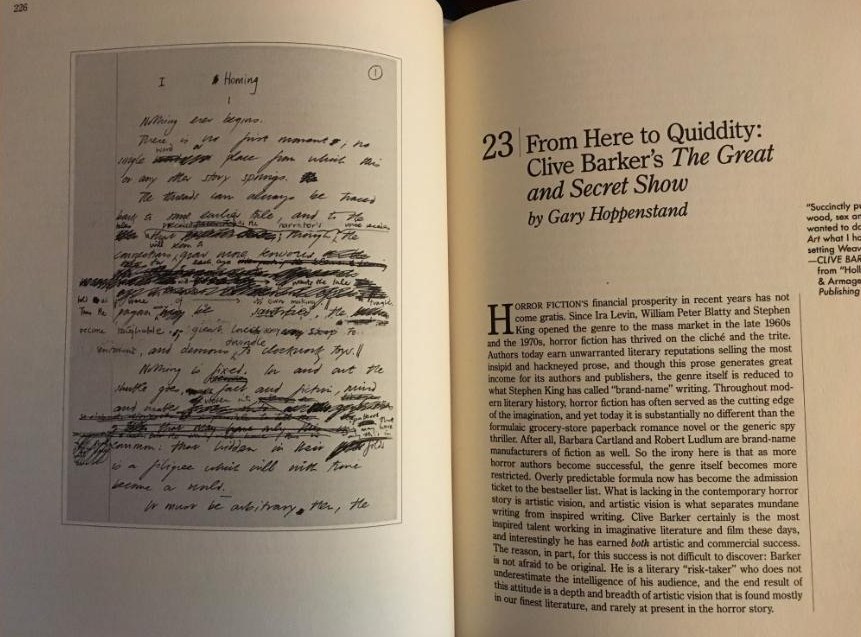 226
I Homing
1
Nothing ever begins.
There is no first moment; no
single word or place from which this
or any other story springs.
The threads can always be traced
back to some earlier tale, and to the
tales
will seem
pagan will be sanctified, the
become laughable; great lovers stoop to
sentiment, and demons dwindle to clockwork toys.
Nothing is fixed. In and out the
shuttle goes, fact and fiction, mind
and matter
common: that hidden in their folds
is a filigree which will with time
become a world.
It must be arbitrary then, the
23 From Here to Quiddity:
Clive Barker's The Great
and Secret Show
by Gary Hoppenstand
"Succinctly pu
wood, sex an
wanted to do
Art what I ha
setting Weav
—CLIVE BAR
from "Holl
& Armage
Publishing
HORROR FICTION'S financial prosperity in recent years has not
come gratis. Since Ira Levin, William Peter Blatty and Stephen
King opened the genre to the mass market in the late 1960s
and the 1970s, horror fiction has thrived on the cliché and the trite.
Authors today earn unwarranted literary reputations selling the most
insipid and hackneyed prose, and though this prose generates great
income for its authors and publishers, the genre itself is reduced to
what Stephen King has called "brand-name" writing. Throughout mod-
ern literary history, horror fiction has often served as the cutting edge
of the imagination, and yet today it is substantially no different than the
formulaic grocery-store paperback romance novel or the generic spy
thriller. After all, Barbara Cartland and Robert Ludlum are brand-name
manufacturers of fiction as well. So the irony here is that as more
horror authors become successful, the genre itself becomes more
restricted. Overly predictable formula now has become the admission
ticket to the bestseller list. What is lacking in the contemporary horror
story is artistic vision, and artistic vision is what separates mundane
writing from inspired writing. Clive Barker certainly is the most
inspired talent working in imaginative literature and film these days,
and interestingly he has earned both artistic and commercial success.
The reason, in part, for this success is not difficult to discover: Barker
is not afraid to be original. He is a literary "risk-taker" who does not
underestimate the intelligence of his audience, and the end result of
this attitude is a depth and breadth of artistic vision that is found mostly
in our finest literature, and rarely at present in the horror story.